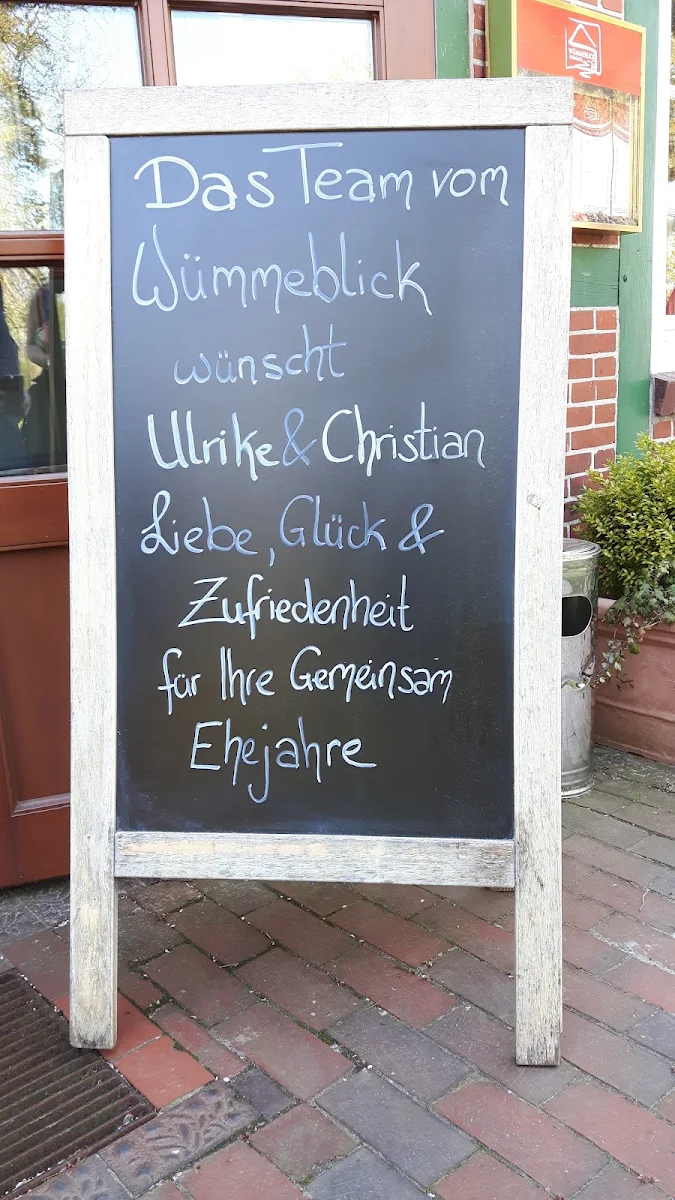 Das Team vom
Wümmeblick
wünscht
Ulrike & Christian
Liebe, Glück &
Zufriedenheit
für Ihre Gemeinsam
Ehejahre